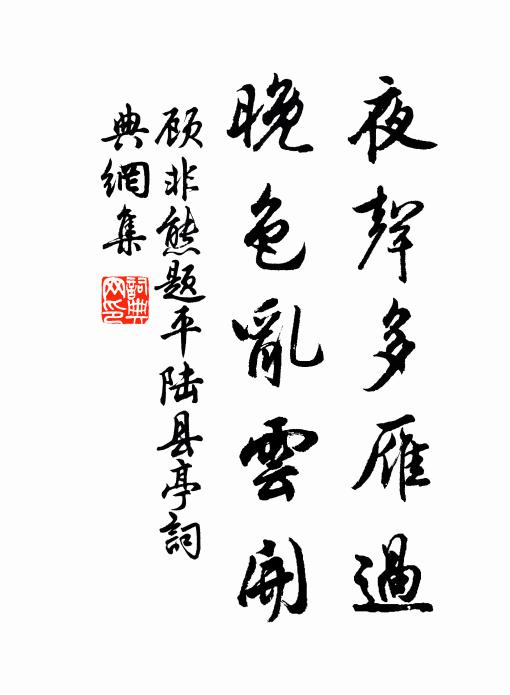 夜聲多雁過
晚色亂雲開
顾非熊題平陆县亭詞
典網集
詞典网印